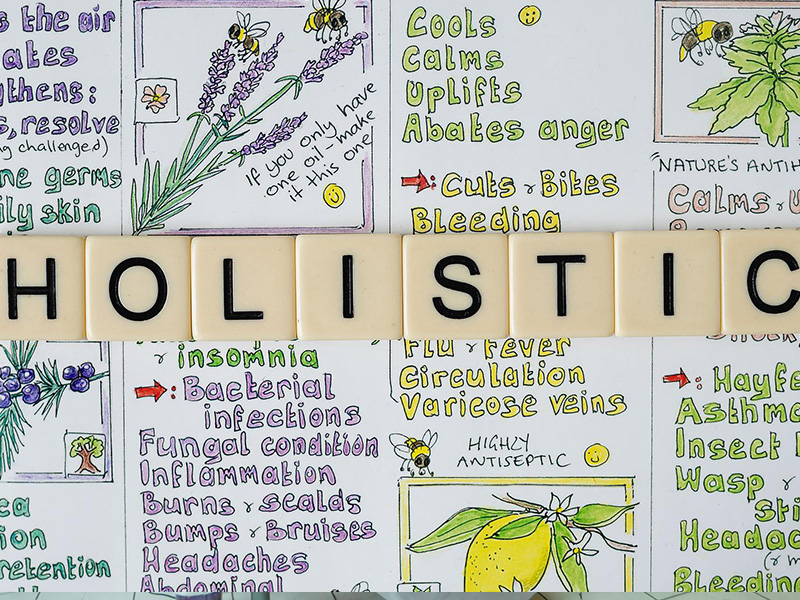 s the air
ates
gthens:
s, resolve
ng challenged)
ne germs
ily skin
If you only have
one oil - make
it this one
Cools
Calms
Uplifts
Abates anger
Cuts & Bites
Bleeding
NATURE'S ANTIH
Calms & U
HOLISTIC
ea
ion
retention
& insomnia
: Bacterial
infections
Fungal condition
Inflammation
Burns & scalds
Bumps & Bruises
Headaches
Abdominal
Flu & Fever
Circulation
Varicose veins
HIGHLY
ANTISEPTIC
: Hayfe
Asthma
Insect
Wasp &
sti
Headac
(& m
Bleeding